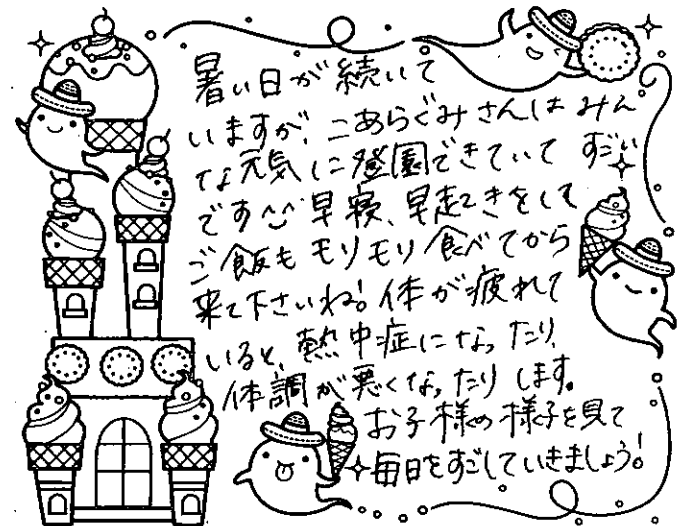 暑い日が続いて
いますが、こあらぐみさんは みん
な元気に登園できていて すごい
です 早寝、早起きをして
ご飯もモリモリ食べてから
来て下さいね!体が疲れて
いると、熱中症になったり、
体調が悪くなったりします。
お子様の様子を見て
毎日をすごしていきましょう!